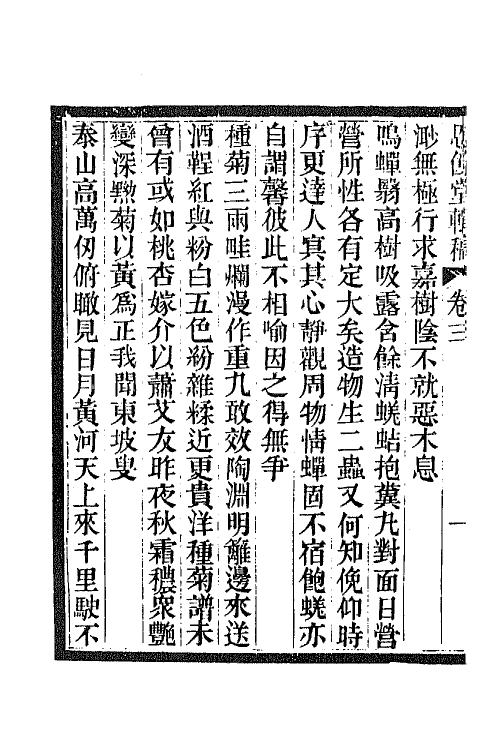 卷三
渺無極行求嘉樹陰不就惡木息
鳴蟬翳高樹吸露含餘淸蜣蛣抱糞丸對面日營
營所性各有定大矣造物生二蟲又何知俛仰時
序更達人寘其心靜觀周物情蟬固不宿飽蜣亦
自謂馨彼此不相喻因之得無爭
種菊三兩畦爛漫作重九敢效陶淵明籬邊來送
酒鞓紅與粉白五色紛雜糅近更貴洋種菊譜未
曾有或如桃杏嫁介以蕭艾友昨夜秋霜穠衆艷
變深黝菊以黃爲正我聞東坡叟
泰山高萬仞俯瞰見日月黃河天上來千里駛不
一